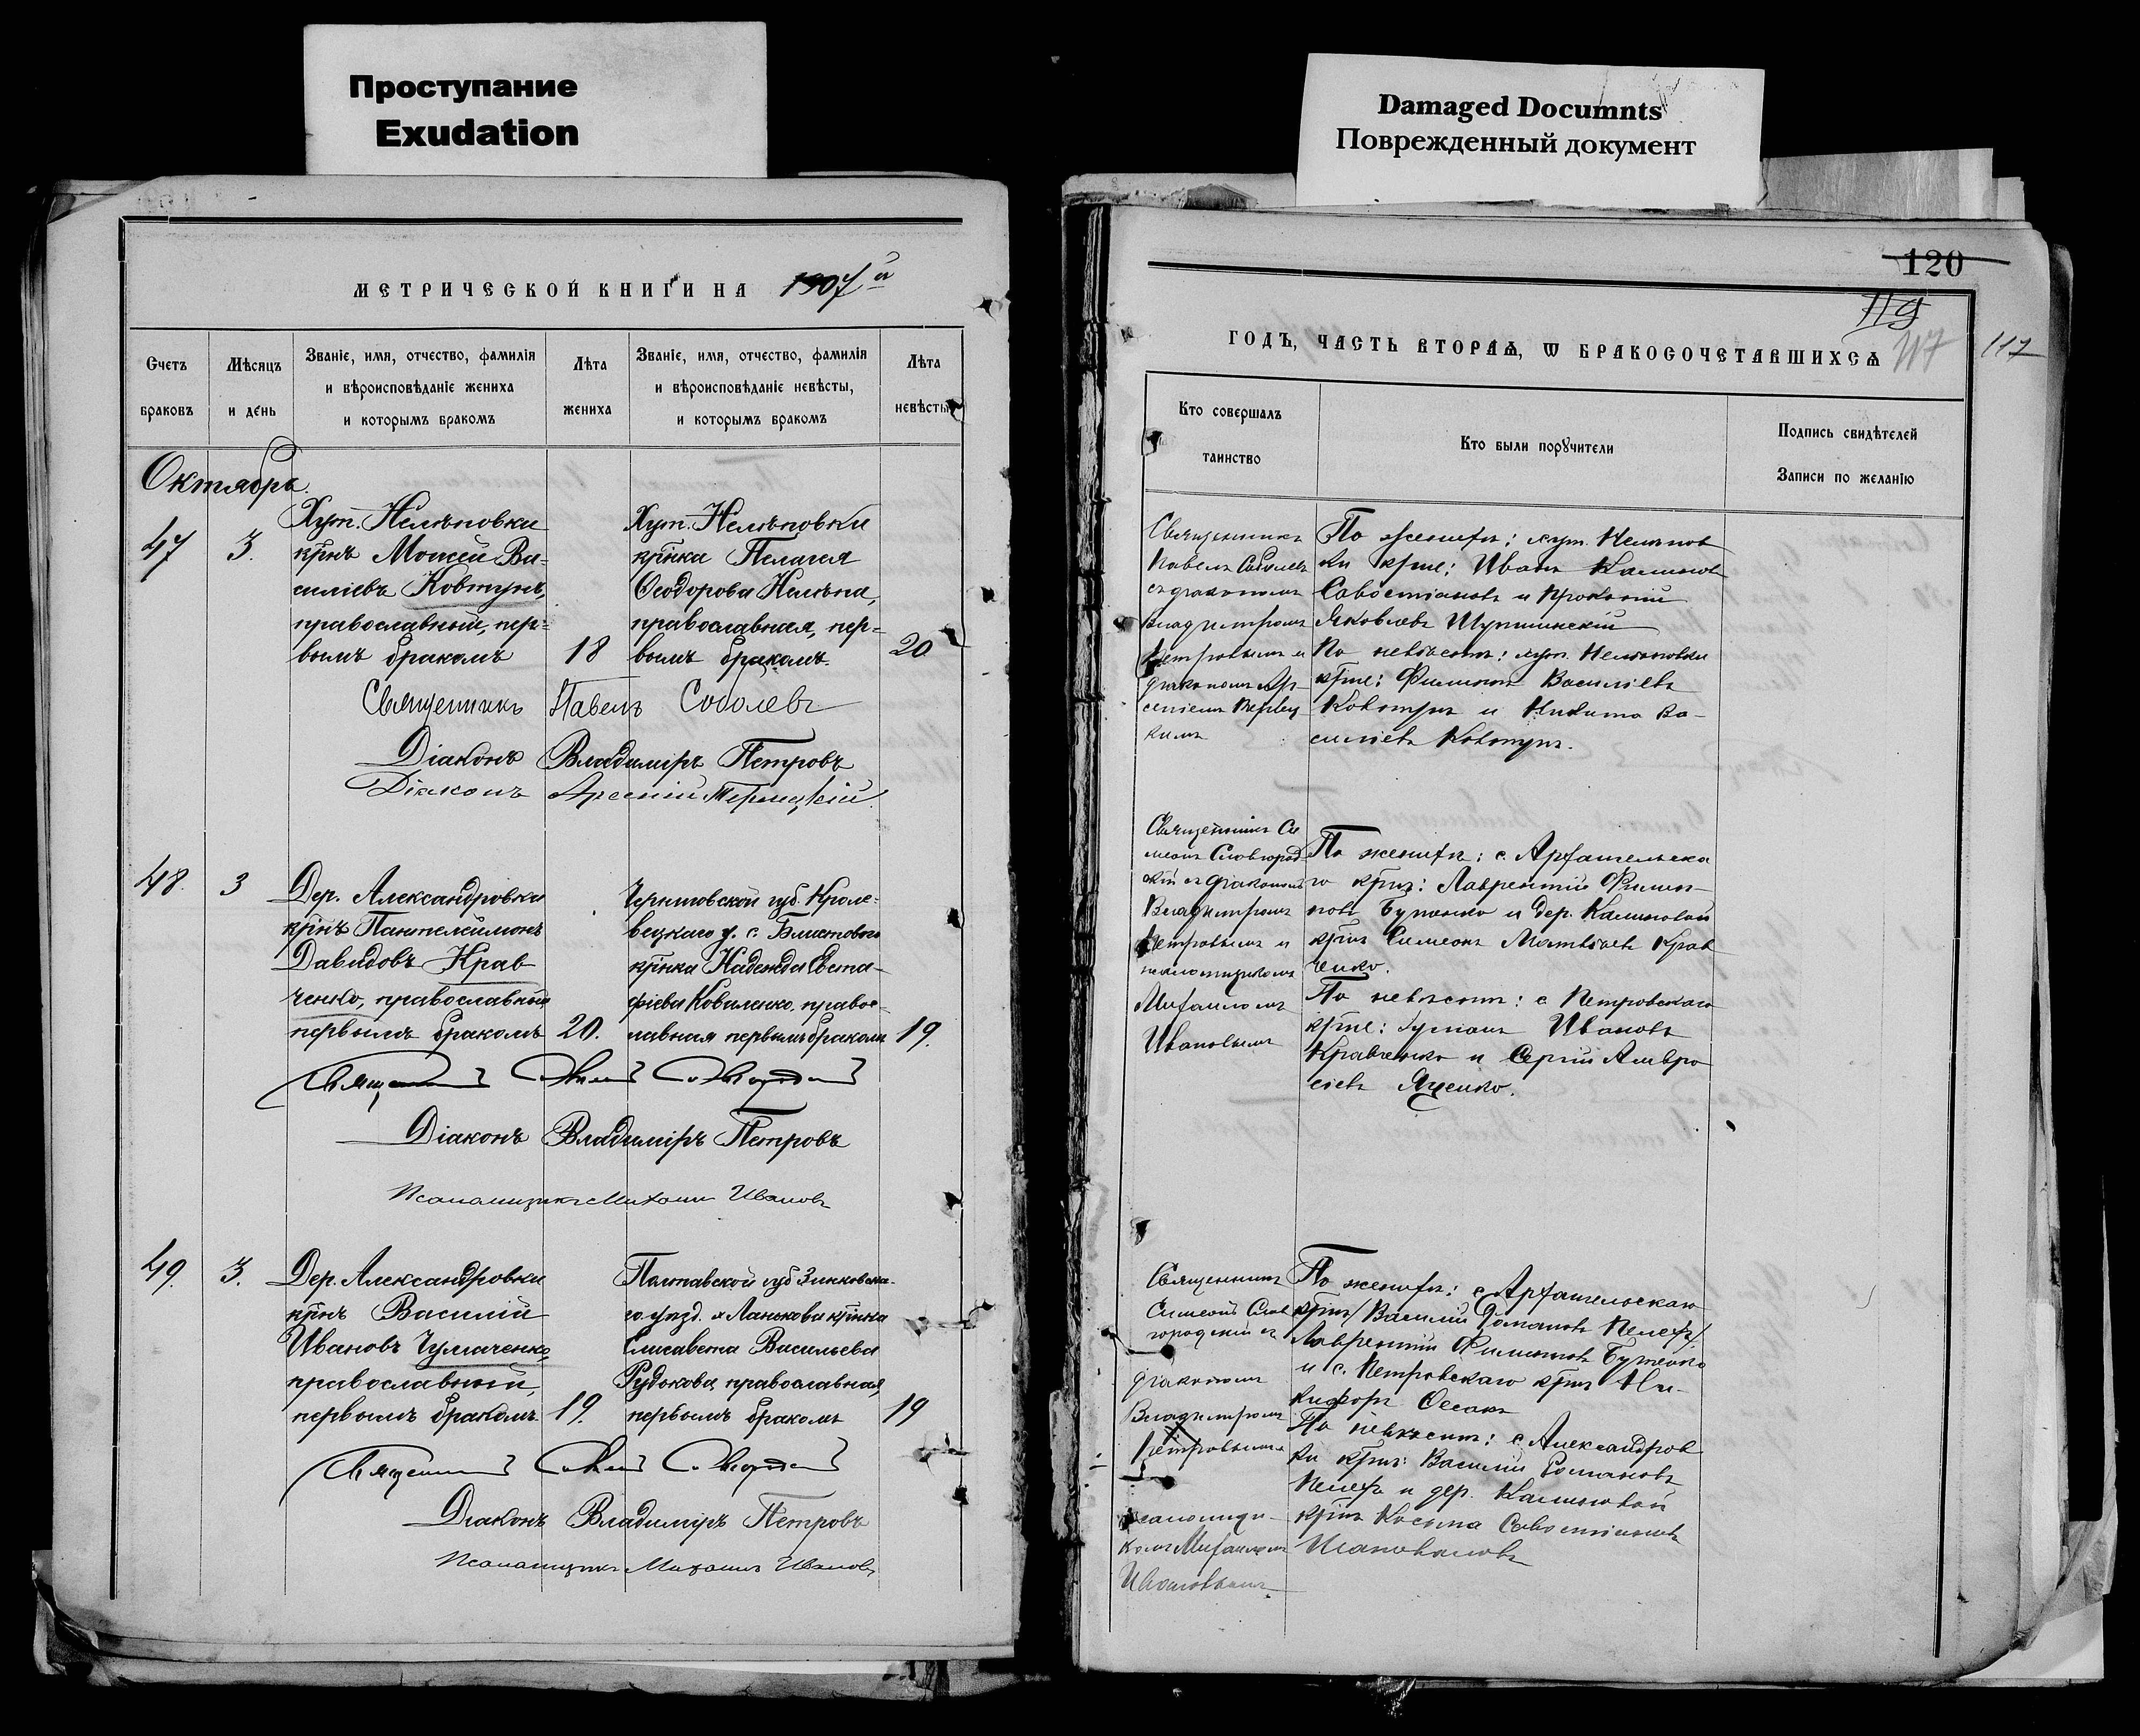 Проступание
Exudation
Damaged Documnts
Поврежденный документ
МЕТРИЧЕСКОЙ КНИГИ НА 1907й
Счетъ браковъ
Мѣсяцъ и день
Званіе, имя, отчество, фамилія
и вѣроисповѣданіе жениха
и которымъ бракомъ
Лѣта жениха
Званіе, имя, отчество, фамилія
и вѣроисповѣданіе невѣсты,
и которымъ бракомъ
Лѣта невѣсты
Октября
47 3.
Хут. Нелѣповки
крнъ Моисей Ва-
силіевъ Ковтунъ,
православный, пер-
вымъ бракомъ
18
Хут. Нелѣповки
крнка Пелагея
Ѳеодорова Нелѣпа,
православная, пер-
вымъ бракомъ.
20
Священникъ Павелъ Соболевъ
Діаконъ Владиміръ Петровъ
Діаконъ Арсеній
48. 3
Дер. Александровки
крнъ Пантелеимонъ
Давидовъ Крав
ченко, православный
первымъ бракомъ
20.
Черниговской губ. Кроле-
вецкаго у. с.
крнка Надежда Евста-
фіева Коваленко. правос-
лавная первымъ бракомъ
19.
Священникъ
Діаконъ Владиміръ Петровъ
Псаломщикъ Михаилъ Ивановъ
49. 3.
Дер. Александровки
крнъ Василій
Ивановъ Чумаченко,
православный,
первымъ бракомъ.
19.
Полтавской губ Зиньковска-
го уѣзд. крнка
Елисавета Васильева
Рудокова, православная,
первымъ бракомъ
19
Священникъ
Діаконъ Владиміръ Петровъ
Псаломщикъ Михаилъ Ивановъ
120
119
117
117
ГОДЪ, ЧАСТЬ ВТОРАЯ, Ѡ БРАКОСОЧЕТАВШИХСЯ
Кто совершалъ
таинство
Кто были порꙋчители
Подпись свидѣтелей
Записи по желанію
Священникъ
Павелъ Соболевъ
съ діакономъ
Владимiромъ
Петровымъ и
діакономъ Ар-
сеніемъ
По женихѣ: хут. Нелѣпов
ки крне: Иванъ
Савостіановъ и Прокопій
Яковлевъ
По невѣстѣ: хут. Нелѣповки
крне: Филиппъ Василіевъ
Ковтунъ и Никита Ва-
силіевъ Ковтунъ.
Священникъ Си
меонъ Словгород-
скій съ діакономъ
Владимiромъ
Петровымъ и
псаломщикомъ
Михаиломъ
Ивановымъ
По женихѣ: с. Архангельска
го крнъ: Лаврентій Филип-
повъ Бутенко и дер. Калиновой
крнъ Симеонъ Матвѣевъ Крав
ченко.
По невѣстѣ: с Петровскаго
крне: Ивановъ
Кравченко и Сергій Амвро
сіевъ Яценко.
Священникъ
Симеонъ Слов
городскій съ
діакономъ
Владимiромъ
Петровымъ и
псаломщи-
комъ Михаиломъ
Ивановымъ
По женихѣ: с Архангельскаго
крнъ Василій Романовъ
Лаврентій Филипповъ Бутенко
и с. Петровскаго крнъ Ни-
кифоръ
По невѣстѣ: с. Александров
ки крнъ: Василій Романовъ
и дер. Калиновой
крнъ Косьма Савостіановъ
Шаповаловъ